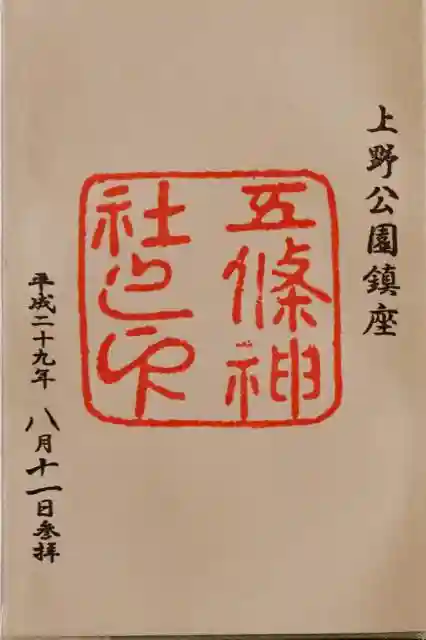 上野公園鎮座
五條神
社之印
平成二十九年八月十一日参拝